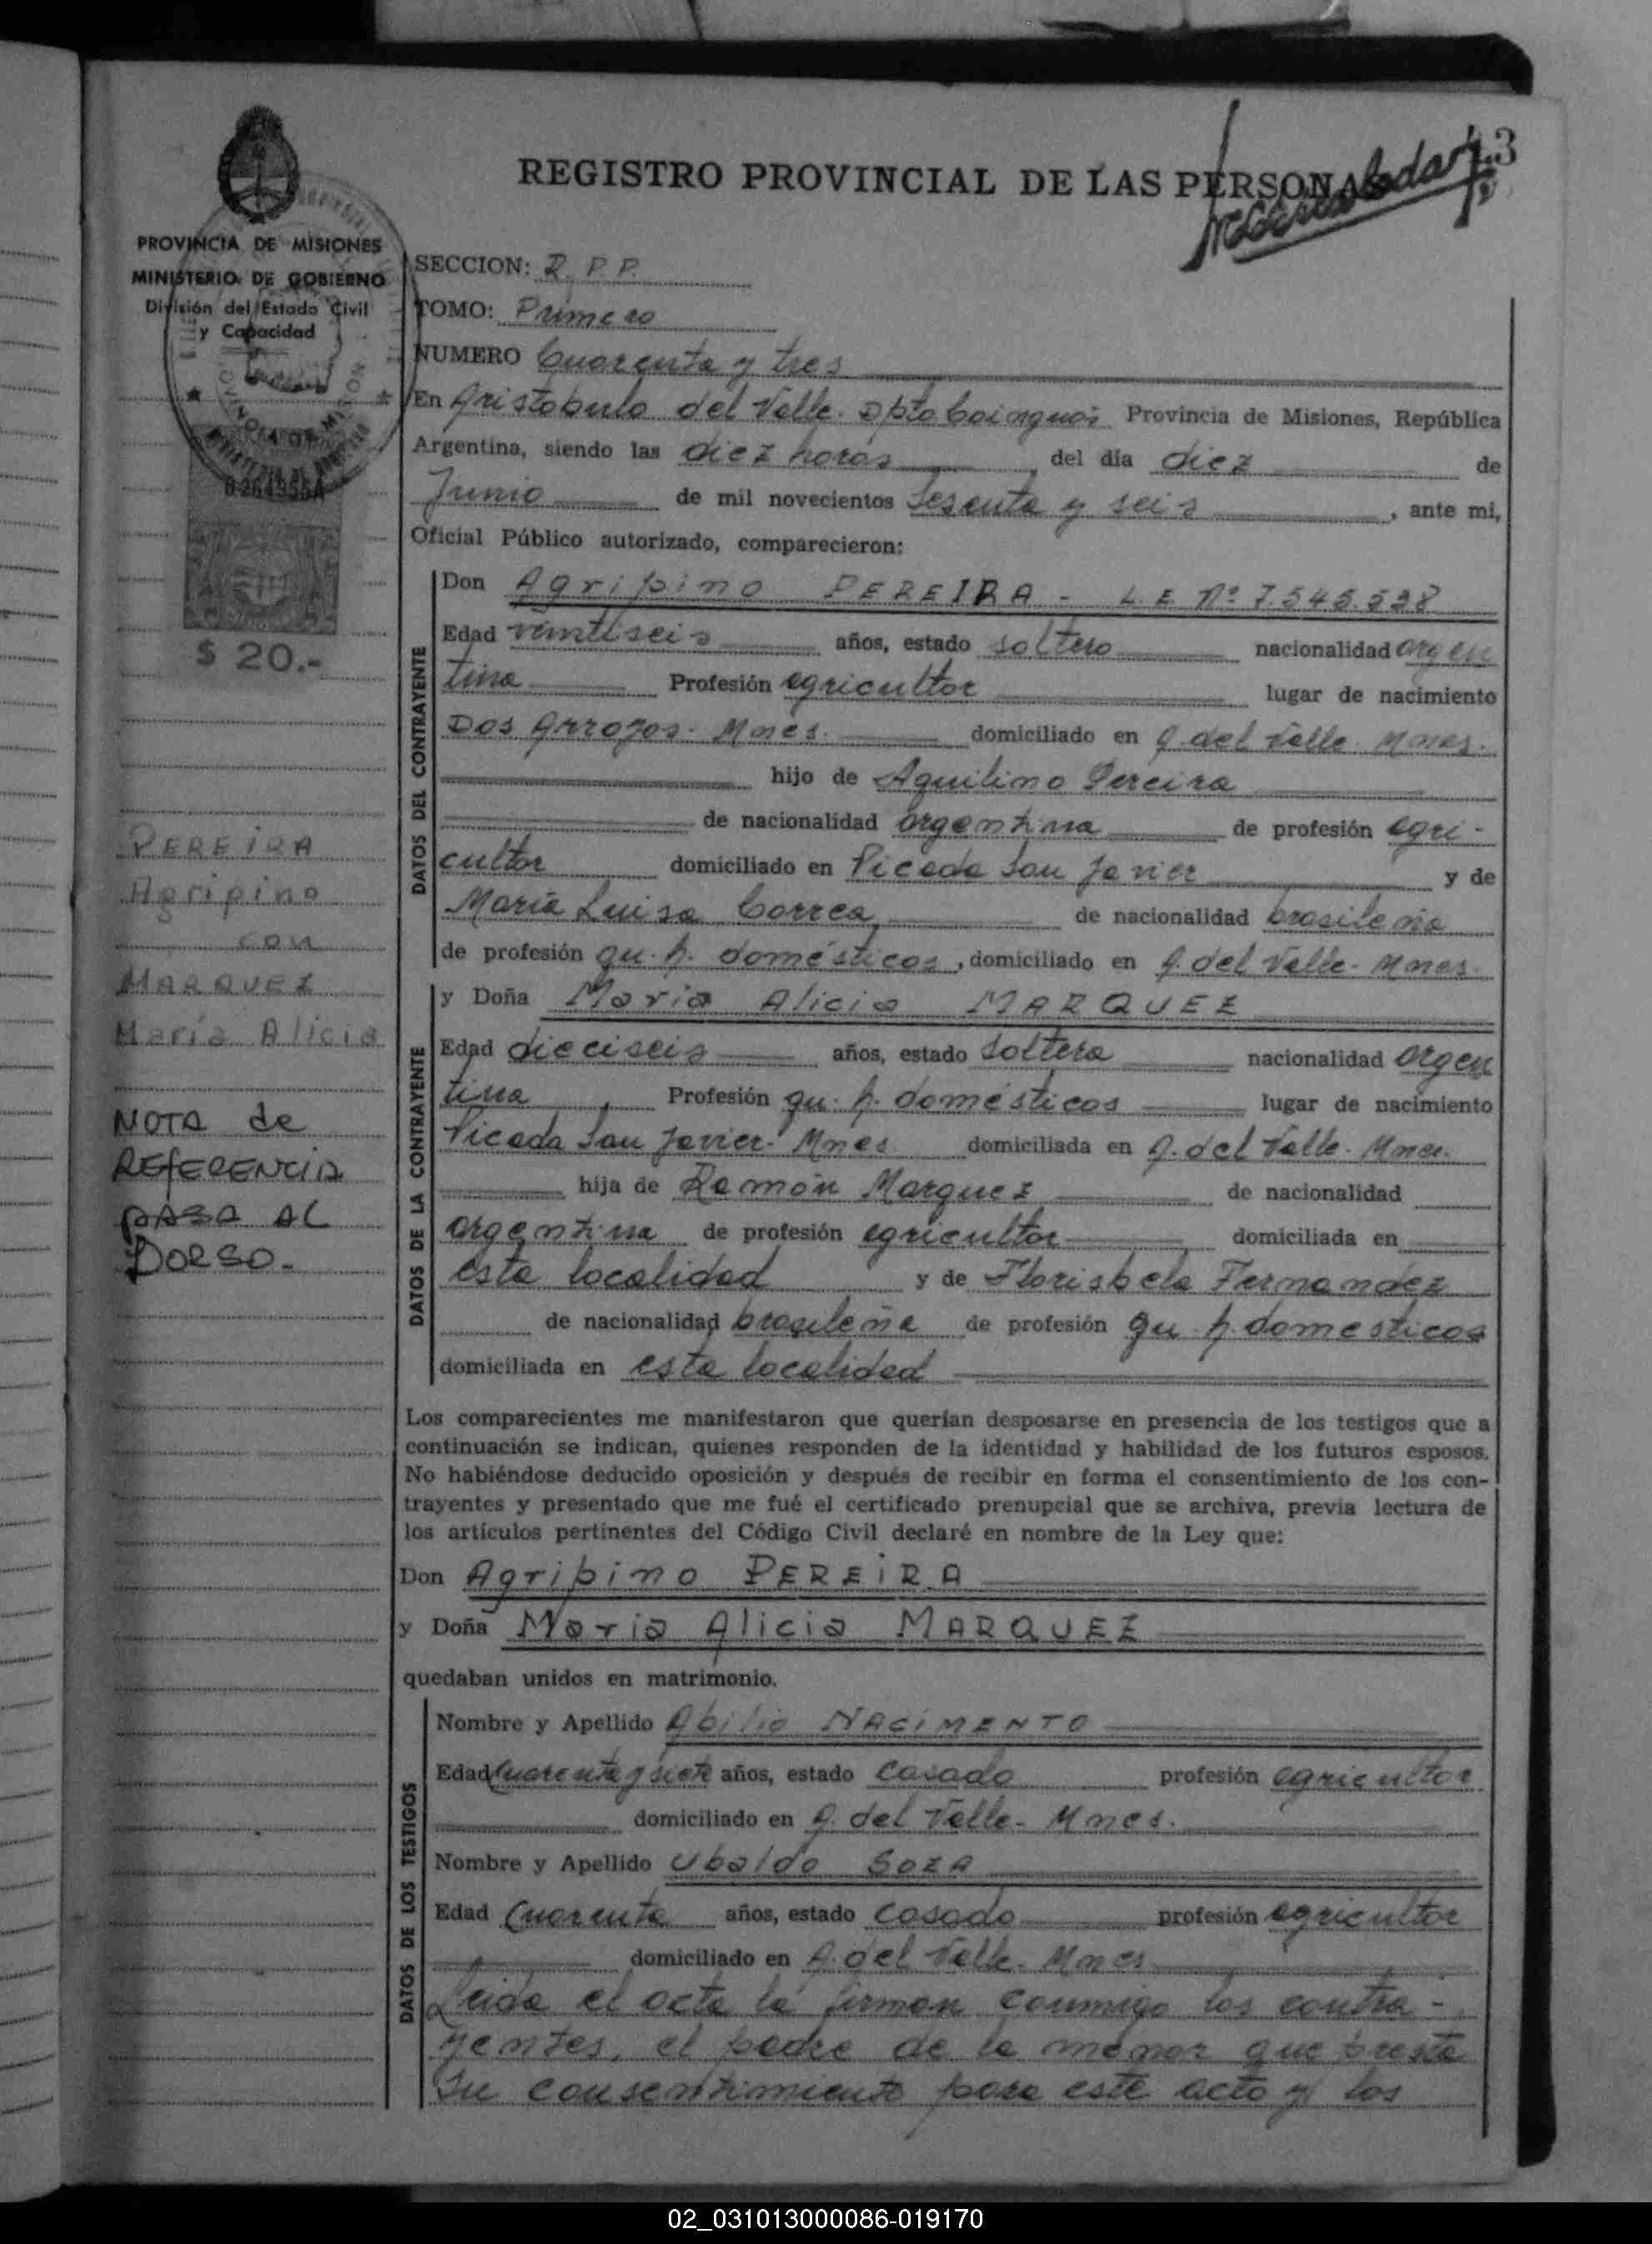 43
REGISTRO PROVINCIAL DE LAS PERSONAS
PROVINCIA DE MISIONES
MINISTERIO DE GOBIERNO
División del Estado Civil
y Capacidad
$ 20.-
PEREIRA
Agripino
con
MARQUEZ
María Alicia
NOTA de
REFERENCIA
PASA AL
DORSO.-
SECCION: R. P. P.
TOMO: Primero
NUMERO Cuarenta y tres
En Aristobulo del Valle. Dpto Cainguas Provincia de Misiones, República
Argentina, siendo las diez horas, del día diez de
Junio de mil novecientos sesenta y seis, ante mi,
Oficial Público autorizado, comparecieron:
DATOS DEL CONTRAYENTE
Don Agripino PEREIRA - L.E. Nº 7.545.538
Edad veintiseis años, estado soltero nacionalidad argen
tina Profesión agricultor lugar de nacimiento
Dos Arroyos - Mnes. domiciliado en A. del Valle. Mnes.
hijo de Aquilino Pereira
de nacionalidad argentina de profesión agri-
cultor domiciliado en Picada San Javier y de
María Luisa Correa de nacionalidad brasileña
de profesión qu. h. domésticos, domiciliado en A. del Valle - Mnes.
DATOS DE LA CONTRAYENTE
y Doña María Alicia MARQUEZ
Edad dieciseis años, estado soltera nacionalidad argen
tina, Profesión qu. h. domésticos lugar de nacimiento
Picada San Javier - Mnes. domiciliada en A. del Valle - Mnes.
hija de Ramón Marquez de nacionalidad
argentina de profesión agricultor domiciliada en
esta localidad y de Florisbela Fernandez
de nacionalidad brasileña de profesión qu. h. domesticos
domiciliada en esta localidad
Los comparecientes me manifestaron que querían desposarse en presencia de los testigos que a
continuación se indican, quienes responden de la identidad y habilidad de los futuros esposos.
No habiéndose deducido oposición y después de recibir en forma el consentimiento de los con-
trayentes y presentado que me fué el certificado prenupcial que se archiva, previa lectura de
los artículos pertinentes del Código Civil declaré en nombre de la Ley que:
Don Agripino PEREIRA
y Doña María Alicia MARQUEZ
quedaban unidos en matrimonio.
DATOS DE LOS TESTIGOS
Nombre y Apellido Abilio NACIMENTO
Edad Cuarenta y siete años, estado casado profesión agricultor
domiciliado en A. del Valle - Mnes.
Nombre y Apellido Ubaldo SOZA
Edad Cuarenta años, estado casado profesión agricultor
domiciliado en A. del Valle - Mnes
Leida el acta la firman conmigo los contra-
yentes, el padre de la menor que presta
su consentimiento para este acto y los
02_031013000086-019170